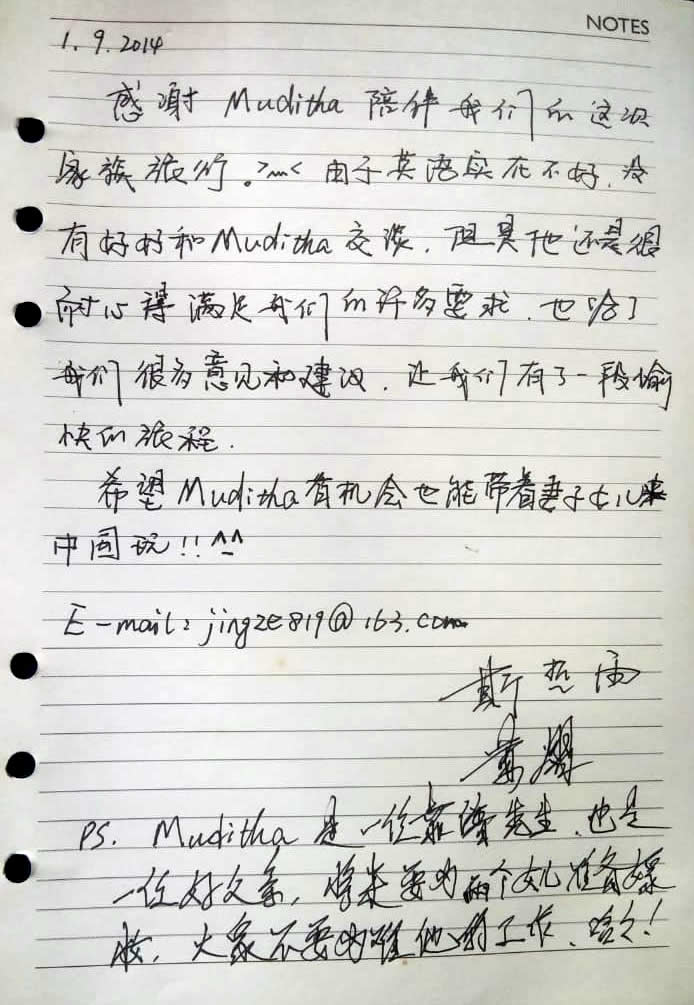 NOTES
1.9.2014
感谢 Muditha 陪伴我们的这次
家族旅行。>﹏< 由于英语实在不好,没
有好好和Muditha交谈,但是他还是很
耐心得满足我们的许多要求,也给了
我们很多意见和建议,让我们有了一段愉
快的旅程.
希望Muditha有机会也能带着妻子女儿来
中国玩!!^^
E-mail: jingze819@163.com
斯
PS. Muditha 是一位靠谱先生,也是
一位好父亲,将来要为两个女儿准备嫁
妆,大家不要为难他的工作,哈哈!